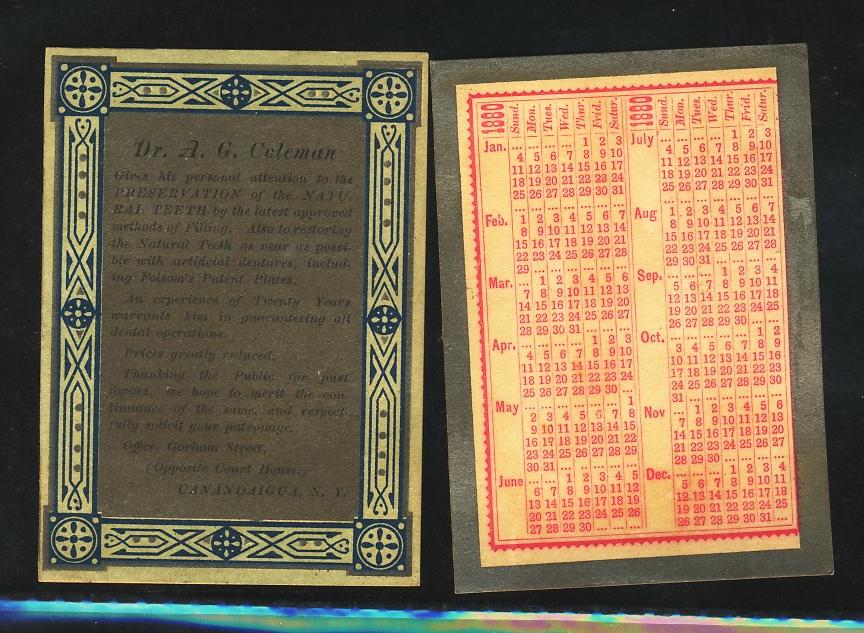 Dr. A. G. Coleman
Gives his personal attention to the
PRESERVATION of the NATU-
RAL TEETH by the latest approved
methods of Filling. Also to restoring
the Natural Teeth as near as possi-
ble with artificial dentures, includ-
ing Folsom's Patent Plates.
An experience of Twenty Years
warrants him in guaranteeing all
dental operations.
Prices greatly reduced.
Thanking the Public for past
favors, we hope to merit the con-
tinuance of the same, and respect-
fully solicit your patronage.
Office, Gorham Street,
(Opposite Court House,)
CANANDAIGUA, N. Y.
1880 Sund. Mon. Tues. Wed. Thur. Frid. Satur.
Jan. ... ... ... ... 1 2 3
4 5 6 7 8 9 10
11 12 13 14 15 16 17
18 19 20 21 22 23 24
25 26 27 28 29 30 31
Feb. 1 2 3 4 5 6 7
8 9 10 11 12 13 14
15 16 17 18 19 20 21
22 23 24 25 26 27 28
29 ... ... ... ... ... ...
Mar. ... 1 2 3 4 5 6
7 8 9 10 11 12 13
14 15 16 17 18 19 20
21 22 23 24 25 26 27
28 29 30 31 ... ... ...
Apr. ... ... ... ... 1 2 3
4 5 6 7 8 9 10
11 12 13 14 15 16 17
18 19 20 21 22 23 24
25 26 27 28 29 30 ...
May ... ... ... ... ... ... 1
2 3 4 5 6 7 8
9 10 11 12 13 14 15
16 17 18 19 20 21 22
23 24 25 26 27 28 29
30 31 ... ... ... ... ...
June ... ... 1 2 3 4 5
6 7 8 9 10 11 12
13 14 15 16 17 18 19
20 21 22 23 24 25 26
27 28 29 30 ... ... ...
1880 Sund. Mon. Tues. Wed. Thur. Frid. Satur.
July ... ... ... ... 1 2 3
4 5 6 7 8 9 10
11 12 13 14 15 16 17
18 19 20 21 22 23 24
25 26 27 28 29 30 31
Aug 1 2 3 4 5 6 7
8 9 10 11 12 13 14
15 16 17 18 19 20 21
22 23 24 25 26 27 28
29 30 31 ... ... ... ...
Sep. ... ... ... 1 2 3 4
5 6 7 8 9 10 11
12 13 14 15 16 17 18
19 20 21 22 23 24 25
26 27 28 29 30 ... ...
Oct. ... ... ... ... ... 1 2
3 4 5 6 7 8 9
10 11 12 13 14 15 16
17 18 19 20 21 22 23
24 25 26 27 28 29 30
31 ... ... ... ... ... ...
Nov ... 1 2 3 4 5 6
7 8 9 10 11 12 13
14 15 16 17 18 19 20
21 22 23 24 25 26 27
28 29 30 ... ... ... ...
Dec. ... ... ... 1 2 3 4
5 6 7 8 9 10 11
12 13 14 15 16 17 18
19 20 21 22 23 24 25
26 27 28 29 30 31 ...